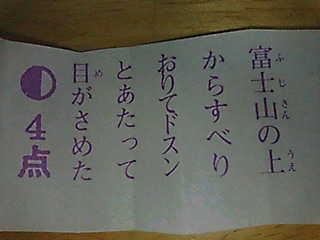 富士山の上
からすべり
おりてドスン
とあたって
目がさめた
4点